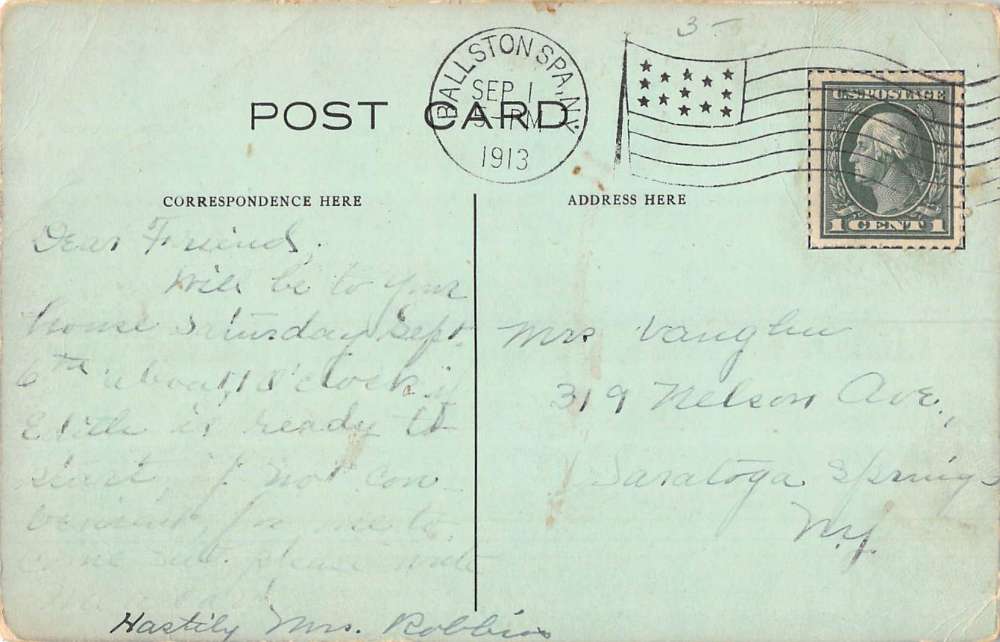 3-
BALLSTON SPA, N.Y.
SEP 1
5-PM
1913
POST CARD
U.S. POSTAGE
1 CENT 1
CORRESPONDENCE HERE
ADDRESS HERE
Dear Friend,
Will be to your
house Saturday Sept.
6th about o'clock if
Edith is ready to
start, if not con-
venient for me to
come Sat. please write
Hastily Mrs. Robbins
Mrs Vaughn
319 Nelson Ave.,
Saratoga Springs
N.Y.